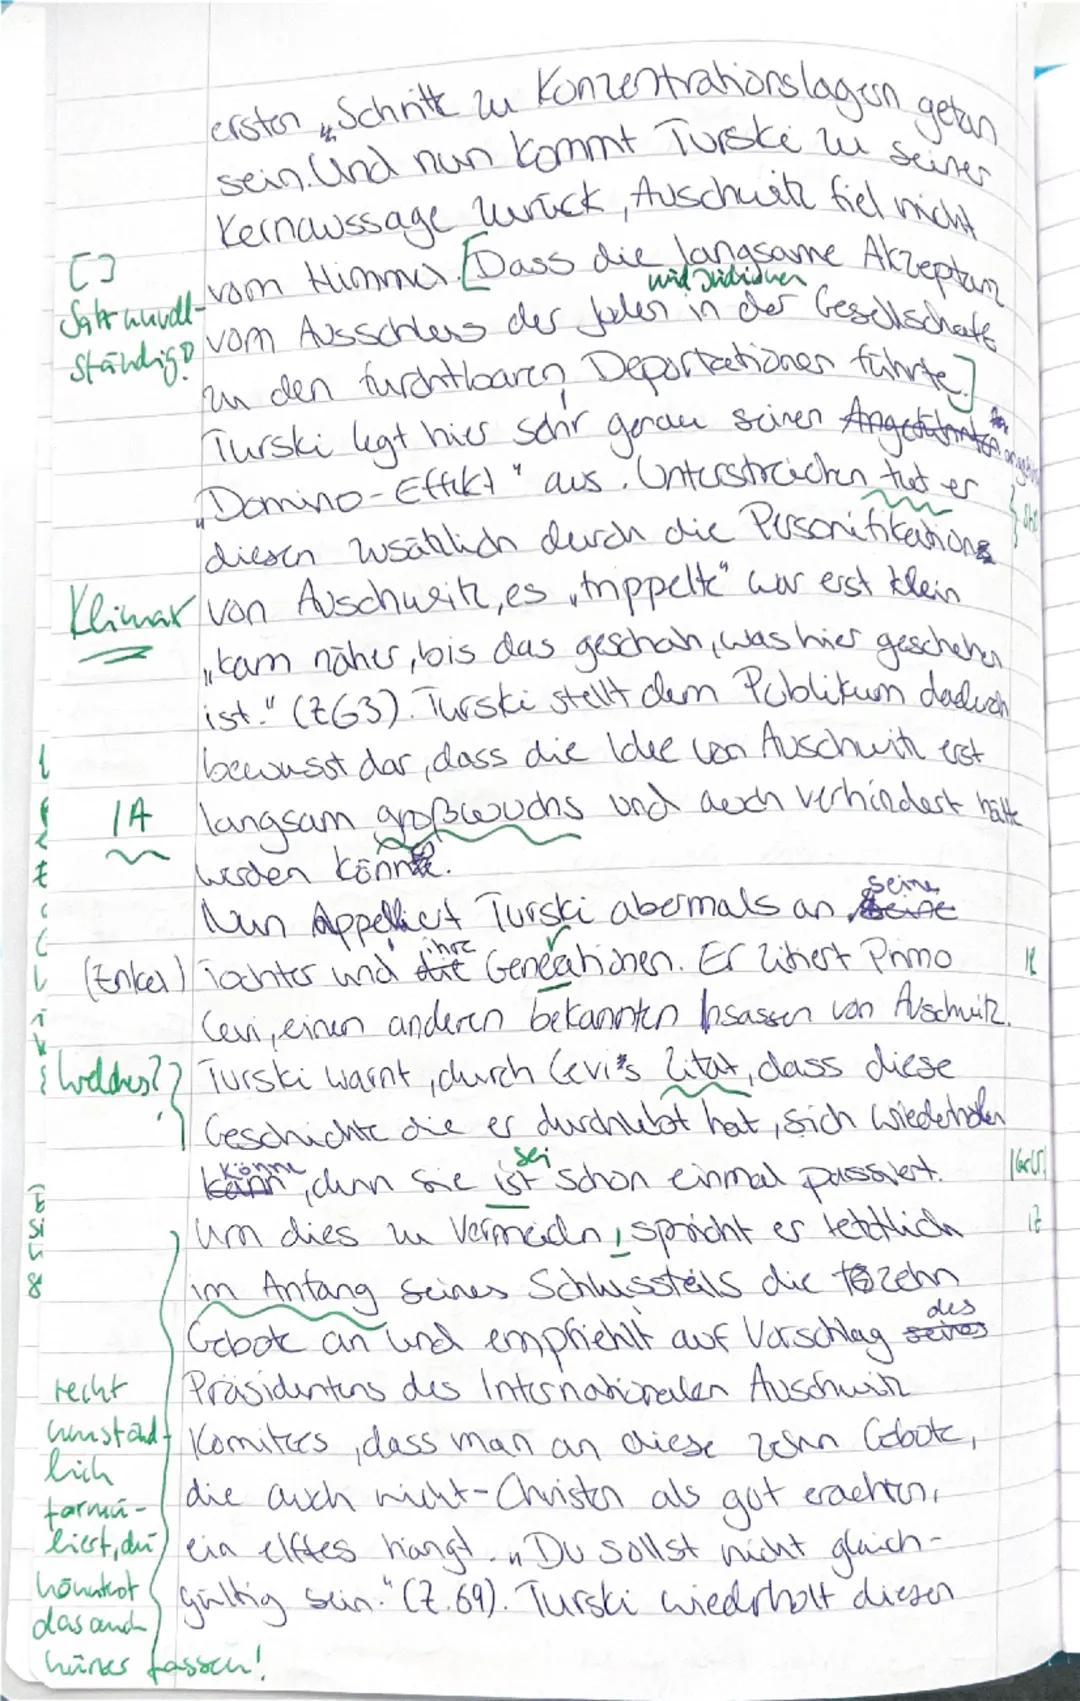 ersten „Schritt zu Konzentrationslagern getan
sein. Und nun kommt Turski zu seiner
Kernaussage zurück, Auschwitz fiel nicht
[ ] vom Himmel. [Dass die langsame Akzeptanz
und jüdischen
Satz unvoll- vom Ausschluss der Juden in der Gesellschaft
ständig? zu den furchtbaren Deportationen führte.]
Turski legt hier sehr genau seinen Angeführten
„Domino-Effekt" aus. Unterstreichen tut er
diesen zusätzlich durch die Personifikation
Klimax von Auschwitz, es „trippelte" war erst klein
„kam näher, bis das geschah, was hier geschehen
ist." (Z63). Turski stellt dem Publikum dadurch
bewusst dar, dass die Idee von Auschwitz erst
|A langsam großwuchs und auch verhindert hätte
werden könne.
Nun Appelliert Turski abermals an seine seine
(Enkel) Tochter und die ihre Geneationen. Er zitiert Primo |R
Levi, einen anderen bekannten Insassen von Auschwitz.
Welches? Turski warnt, durch Levi's Zitat, dass diese
Geschichte die er durchlebt hat, sich wiederholen
kann könne, denn sie ist sei schon einmal passiert. |Gr(K)
Um dies zu Vermeidn, spricht er letztlich |Z
im Anfang seines Schlussteils die zehn
Gebote an und empfiehlt auf Vorschlag seines des
recht Präsidentens des Internationalen Auschwitz
umständ- Komitees, dass man an diese zehn Gebote,
lich die auch nicht-Christen als gut erachten,
formu-
liert, du ein elftes hängt. „Du sollst nicht gleich-
könntest gültig sein." (Z.69). Turski wiederholt diesen
das auch
kürzer fassen!